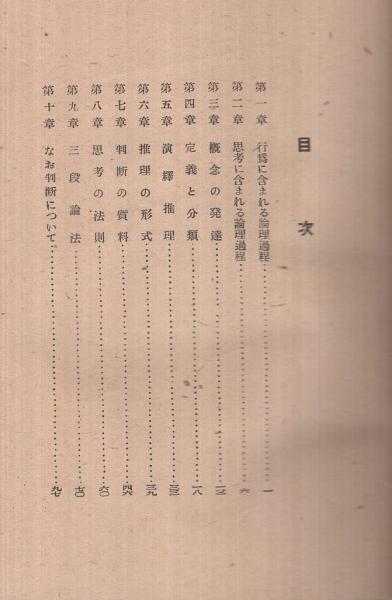 目次
第一章 行爲に含まれる論理過程…一
第二章 思考に含まれる論理過程…六
第三章 概念の發達…一三
第四章 定義と分類…一八
第五章 演繹推理…三三
第六章 推理の形式…三九
第七章 判断の資料…四六
第八章 思考の法則…六〇
第九章 三段論法…七〇
第十章 なお判断について…九七